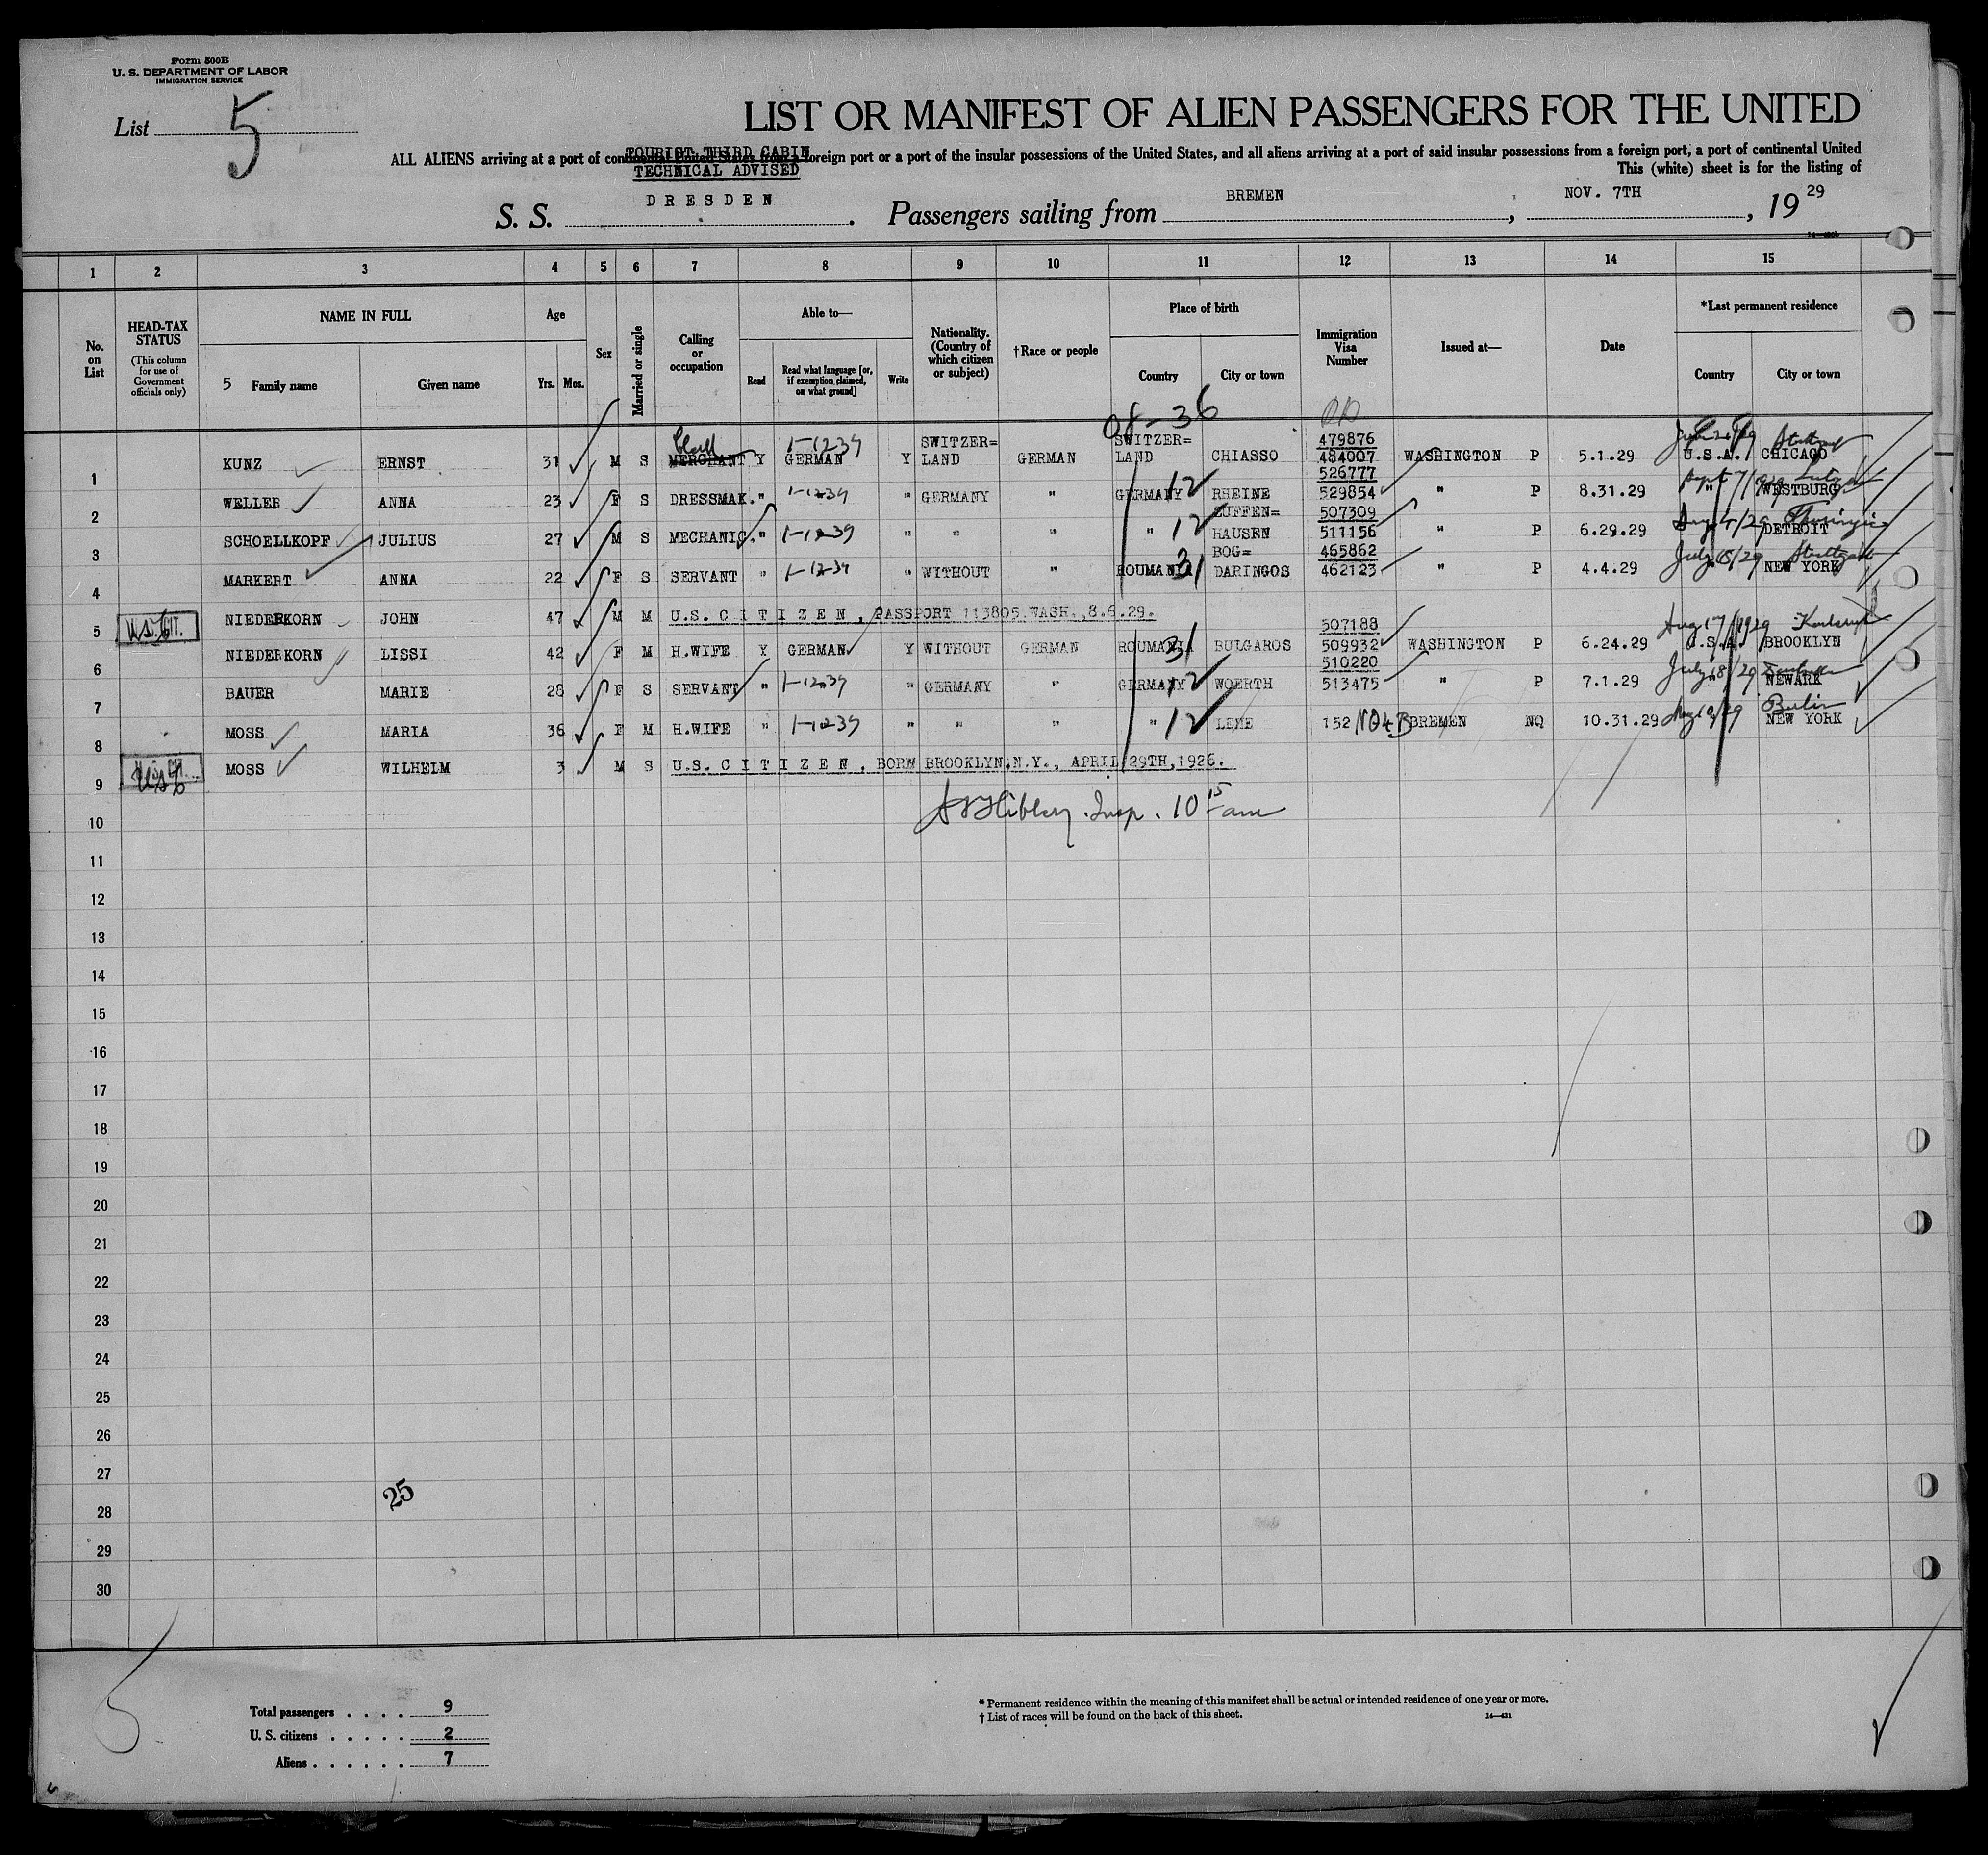 Form 500B
U. S. DEPARTMENT OF LABOR
IMMIGRATION SERVICE
List 5
LIST OR MANIFEST OF ALIEN PASSENGERS FOR THE UNITED
TOURIST THIRD CABIN
ALL ALIENS arriving at a port of continental United States from a foreign port or a port of the insular possessions of the United States, and all aliens arriving at a port of said insular possessions from a foreign port, a port of continental United
TECHNICAL ADVISED
This (white) sheet is for the listing of
S. S. DRESDEN. Passengers sailing from BREMEN, NOV. 7TH, 19 29
1 2 3 4 5 6 7 8 9 10 11 12 13 14 15
No. on List
HEAD-TAX STATUS (This column for use of Government officials only)
NAME IN FULL
5 Family name Given name
Age Yrs. Mos.
Sex
Married or single
Calling or occupation
Able to—
Read Read what language [or, if exemption claimed, on what ground] Write
Nationality. (Country of which citizen or subject)
†Race or people
Place of birth
Country City or town
Immigration Visa Number
Issued at—
Date
*Last permanent residence
Country City or town
08-36
1 KUNZ ERNST 31 M S MERCHANT Y GERMAN 1-12-39 Y SWITZER= LAND GERMAN SWITZER= LAND CHIASSO 479876 484007 WASHINGTON P 5.1.29 U.S.A. CHICAGO
2 WELLER ANNA 23 F S DRESSMAK. " 1-12-39 " GERMANY " GERMANY 12 RHEINE 526777 529854 " P 8.31.29 " WESTBURG
3 SCHOELLKOPF JULIUS 27 M S MECHANIC " 1-12-39 " " " " 12 ZUFFEN= HAUSEN 507309 511156 " P 6.29.29 Aug 4/29 DETROIT
4 MARKERT ANNA 22 F S SERVANT " 1-12-39 " WITHOUT " ROUMANIA 31 BOG= DARINGOS 465862 462123 " P 4.4.29 NEW YORK
5 U.S. CIT. NIEDERKORN JOHN 47 M M U.S. C I T I Z E N , PASSPORT 113805 WASH. ,8.6.29.
6 NIEDERKORN LISSI 42 F M H.WIFE Y GERMAN Y WITHOUT GERMAN ROUMANIA 31 BULGAROS 507188 509932 WASHINGTON P 6.24.29 Aug 17/1929 Karlsruhe U.S.A. BROOKLYN
7 BAUER MARIE 28 F S SERVANT " 1-12-39 " GERMANY " GERMANY 12 WOERTH 510220 513475 " P 7.1.29 July 18/29 NEWARK
8 MOSS MARIA 36 F M H.WIFE " 1-12-39 " " " " 12 LEHE 152 NQ4B BREMEN NQ 10.31.29 Berlin NEW YORK
9 MOSS WILHELM 3 M S U.S. C I T I Z E N , BORN BROOKLYN,N.Y., APRIL 29TH,1926.
10 Insp. 10 15 am
11
12
13
14
15
16
17
18
19
20
21
22
23
24
25
26
27
25
28
29
30
Total passengers . . . . 9
U. S. citizens . . . . . 2
Aliens . . . . . . 7
* Permanent residence within the meaning of this manifest shall be actual or intended residence of one year or more.
† List of races will be found on the back of this sheet.
14—431